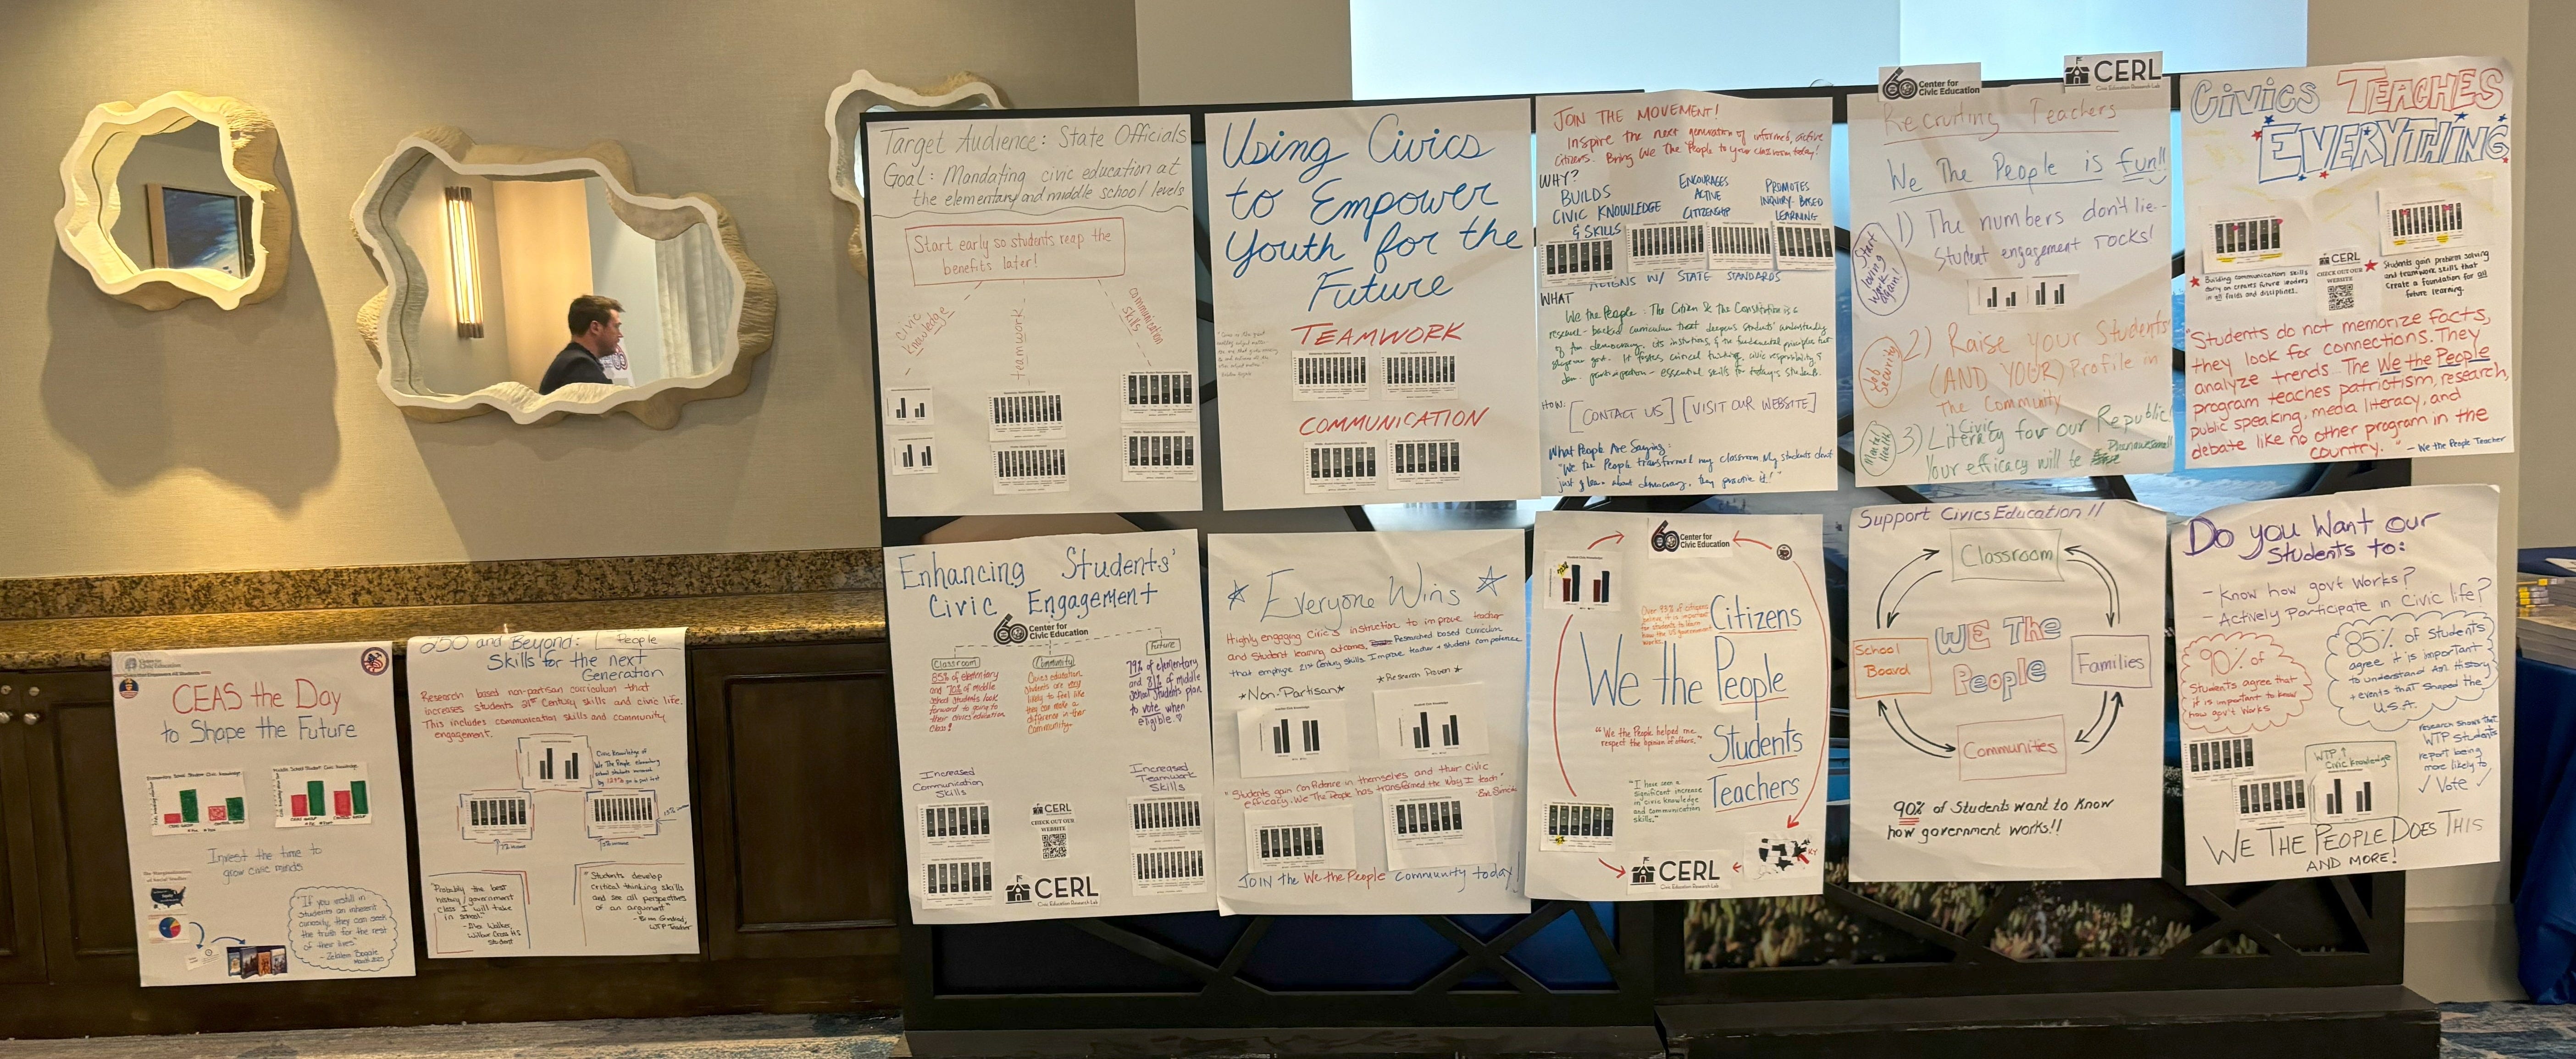 Target Audience: State Officials
Goal: Mandating civic education at
the elementary and middle school levels
Start early so students reap the
benefits later!
civic
knowledge
teamwork
communication
skills
Using Civics
to Empower
Youth for the
Future
TEAMWORK
COMMUNICATION
JOIN THE MOVEMENT!
Inspire the next generation of informed, active
citizens. Bring We The People to your classroom today!
WHY?
BUILDS
CIVIC KNOWLEDGE
& SKILLS
ENCOURAGES
ACTIVE
CITIZENSHIP
PROMOTES
INQUIRY-BASED
LEARNING
ALIGNS W/ STATE STANDARDS
WHAT
We the People: The Citizen & the Constitution is a
research-backed curriculum that deepens students' understanding
of Am democracy, its institutions, & the fundamental principles that
govt. It fosters critical thinking, civic responsibility &
dem. participation - essential skills for today's students.
HOW:
[CONTACT US] [VISIT OUR WEBSITE]
What People Are Saying:
"We the People transformed my classroom. My students don't
just learn about democracy, they practice it!"
60 Center for
Civic Education
CERL
Civic Education Research Lab
Recruiting Teachers
We The People is fun!!
Start
loving
work
again!
1) The numbers don't lie--
Student engagement rocks!
Job
Security
2) Raise your Students'
(AND YOUR) Profile in
The Community
Mental
Health
3) Civic
Literacy for our Republic!
Your efficacy will be
CIVICS TEACHES
EVERYTHING
Building communication skills
early on creates future leaders
in all fields and disciplines.
CERL
CHECK OUT OUR
WEBSITE
Students gain problem solving
and teamwork skills that
create a foundation for all
future learning.
"Students do not memorize facts,
they look for connections. They
analyze trends. The We the People
program teaches patriotism, research,
public speaking, media literacy, and
debate like no other program in the
country."
- We the People Teacher
CEAS the Day
to Shape the Future
Elementary School Student Civic Knowledge
Middle School Student Civic Knowledge
Invest the time to
grow civic minds
"If you instill in
students an inherent
curiosity, they can seek
the truth for the rest
of their lives."
250 and Beyond: People
Skills for the next
Generation
Research based non-partisan curriculum that
increases students 21st Century skills and civic life.
This includes communication skills and community
engagement.
Civic Knowledge of
We The People elementary
school students increased
by
"Probably the best
history/government
class I will take
in school"
Student
"Students develop
critical thinking skills
and see all perspectives
of an argument"
WTP Teacher
Enhancing Students'
Civic Engagement
60 Center for
Civic Education
Classroom
85% of elementary
and 70% of middle
school students look
forward to going to
their civics education
class!
Community
Civics education
students are
likely to feel like
they can make a
difference in their
community.
Future
79% of elementary
and 81% of middle
school students plan
to vote when
eligible
Increased
Communication
Skills
Increased
Teamwork
Skills
CERL
CHECK OUT OUR
WEBSITE
CERL
Civic Education Research Lab
Everyone Wins
Highly engaging Civics instruction to improve teacher
and Student learning outcomes. Researched based curriculum
that employs 21st century skills. Improve teacher + student competence
*Non-Partisan*
*Research Proven*
"Students gain confidence in themselves and their civic
efficacy. We The People has transformed the way I teach"
JOIN the We the People community today!
60 Center for
Civic Education
Over 93% of citizens
believe it is important
for students to learn
how the US government
works.
Citizens
We the People
Students
Teachers
"We the People helped me
respect the opinion of others."
"I have seen a
significant increase
in civic knowledge
and communication
skills."
KY
CERL
Civic Education Research Lab
Support Civics Education!!
Classroom
School
Board
WE The
People
Families
Communities
90% of Students want to know
how government works!!
Do you Want our
Students to:
- Know how gov't works?
- Actively Participate in Civic life?
90% of
Students agree that
it is important to know
how gov't works
85% of Students
agree it is important
to understand Am. History
+ events that shaped the
U.S.A.
WTP ↑
Civic Knowledge
research shows that
WTP students
report being
more likely to
✓ Vote ✓
WE THE PEOPLE DOES THIS
AND MORE!